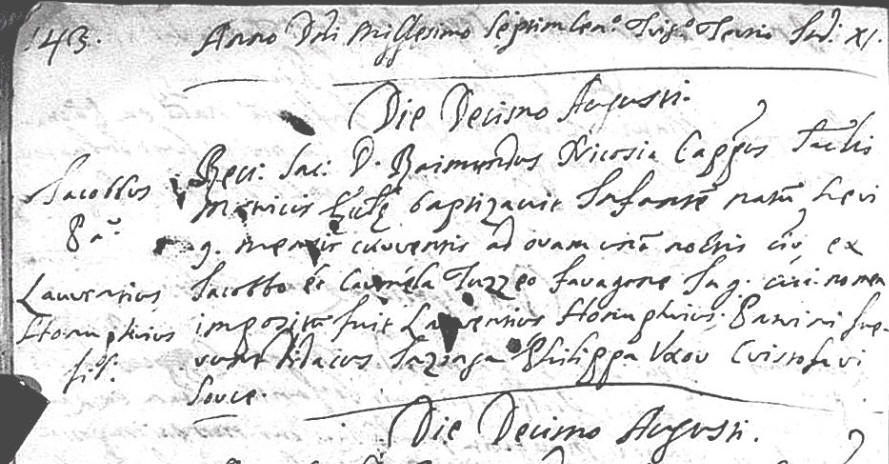 143.
Anno Dñi Millesimo Septim Cen.º Trig.º Tertio Ind: XI.
Die Decimo Augusti.
Jacobbus
Laurentius
Honuphrius
fil:
Rev: Sac: D. Raimundus Nicosia Capp.
Matricis baptizavit Infantē natū heri
9. mensis currentis ad oram noctis ex
Jacobbo et Carmela Tuzzeo Favagone Jug. cui nomen
impositū fuit Laurentius Honuphrius. Patrini fue-
runt Didacus Philippa Uxor Cristofari
Souce.
Die Decimo Augusti.